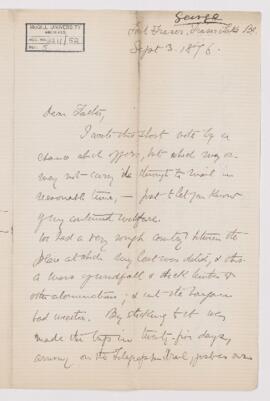 George
Fort Fraser, Fraser Lake BC.
Sept 3. 1876.
McGILL UNIVERSITY
ARCHIVES
ACC. NO. 2211/52
REF. 5
Dear Father,
I write this short note by a
chance which offers, but which may or
may not carry it through to mail in
reasonable time, — just to let you know
of my continued welfare.
We had a very rough country between the
place at which my last was dated, & this
a worse grundfall & thick timber &
other abominations; & into the bargain
bad weather. By sticking to it we
made the trip in twenty-five days,
arriving on the Telegraph trail, just as our